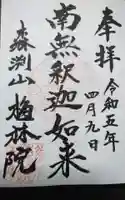 奉拝 令和五年四月九日
南無釈迦如来
森渕山 梅林院